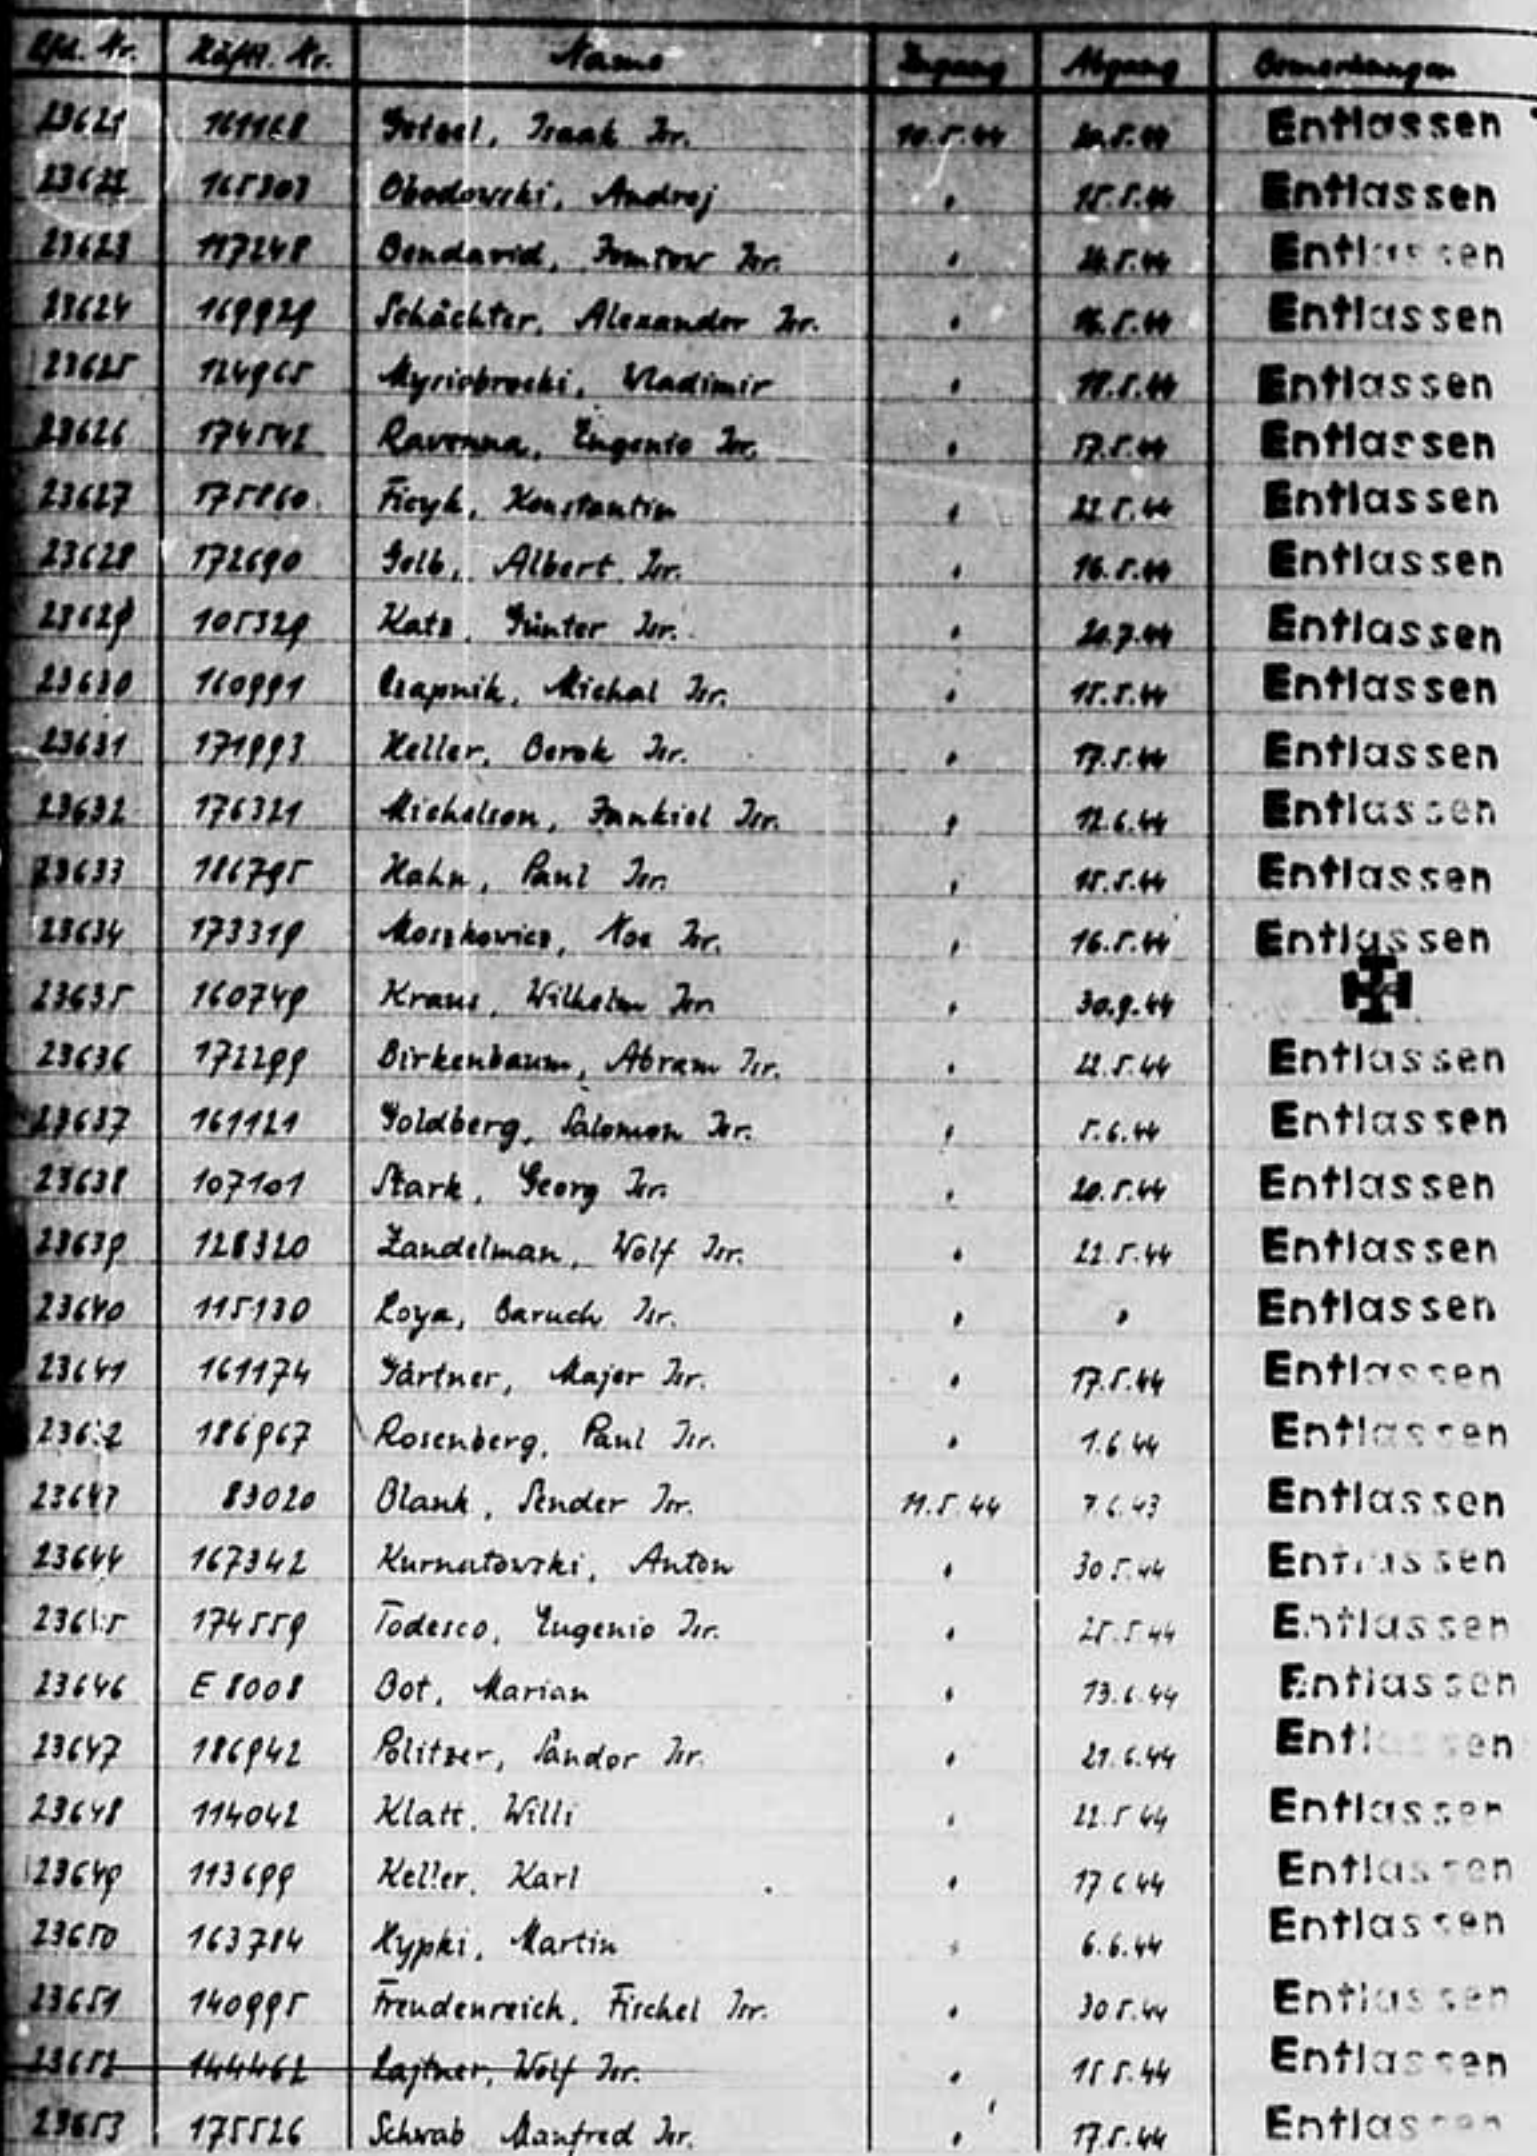 Lfd. Nr. Häftl. Nr. Name Zugang Abgang Bemerkungen
23621 161168 Isaak Isr. 10.5.44 20.5.44 Entlassen
23622 165303 Obodowski, Andrej " 15.5.44 Entlassen
23623 117248 Bendavid, Isr. " Entlassen
23624 169929 Schächter, Alexander Isr. " 16.5.44 Entlassen
23625 124965 Wladimir " 18.5.44 Entlassen
23626 174542 Ravenna, Eugenio Isr. " 17.5.44 Entlassen
23627 175860 Ficyk, Konstantin " 22.5.44 Entlassen
23628 172690 Gelb, Albert Isr. " 16.5.44 Entlassen
23629 105329 Katz, Günter Isr. " 20.7.44 Entlassen
23630 160991 Czapnik, Michal Isr. " 15.5.44 Entlassen
23631 171993 Heller, Berek Isr. " 17.5.44 Entlassen
23632 176321 Michelson, Jankiel Isr. " 12.6.44 Entlassen
23633 186795 Hahn, Paul Isr. " 15.5.44 Entlassen
23634 173319 Moszkowicz, Noe Isr. " 16.5.44 Entlassen
23635 160749 Kraus, Wilhelm Isr. " 30.9.44
23636 172299 Birkenbaum, Abram Isr. " 22.5.44 Entlassen
23637 161121 Goldberg, Salomon Isr. " 5.6.44 Entlassen
23638 107101 Stark, Georg Isr. " 20.5.44 Entlassen
23639 128320 Zandelman, Wolf Isr. " 22.5.44 Entlassen
23640 115130 Koya, Baruch Isr. " " Entlassen
23641 161174 Gärtner, Majer Isr. " 17.5.44 Entlassen
23642 186967 Rosenberg, Paul Isr. " 1.6.44 Entlassen
23643 83020 Blank, Sender Isr. 11.5.44 7.6.43 Entlassen
23644 167342 Kurnatowski, Anton " 30.5.44 Entlassen
23645 174559 Todesco, Eugenio Isr. " 25.5.44 Entlassen
23646 E 8008 Bot, Marian " 13.6.44 Entlassen
23647 186942 Politzer, Sandor Isr. " 21.6.44 Entlassen
23648 114042 Klatt, Willi " 22.5.44 Entlassen
23649 113699 Keller, Karl " 17.6.44 Entlassen
23650 163784 Hypki, Martin " 6.6.44 Entlassen
23651 140995 Freudenreich, Fischel Isr. " 30.5.44 Entlassen
23652 144462 Lajtner, Wolf Isr. " 15.5.44 Entlassen
23653 175526 Schwab Manfred Isr. " 17.5.44 Entlassen